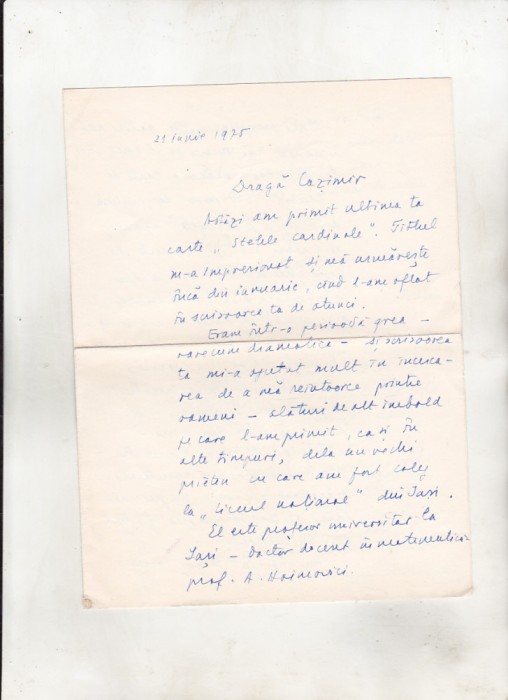 21 Iunie 1975
Dragă Cazimir
Astăzi am primit ultima ta
carte „Stelele cardinale". Titlul
m-a impresionat și mă urmărește
încă din ianuarie, cînd l-am aflat
în scrisoarea ta de atunci.
Eram într-o perioadă grea –
oarecum dramatică – și scrisoarea
ta mi-a ajutat mult în încerca-
rea de a mă reîntoarce printre
oameni – alături de alt imbold
pe care l-am primit, ca și în
alte timpuri, dela un vechi
prieten cu care am fost coleg
la „Liceul național" din Iași.
El este profesor universitar la
Iași – doctor docent în matematică –
prof. A. Haimovici.